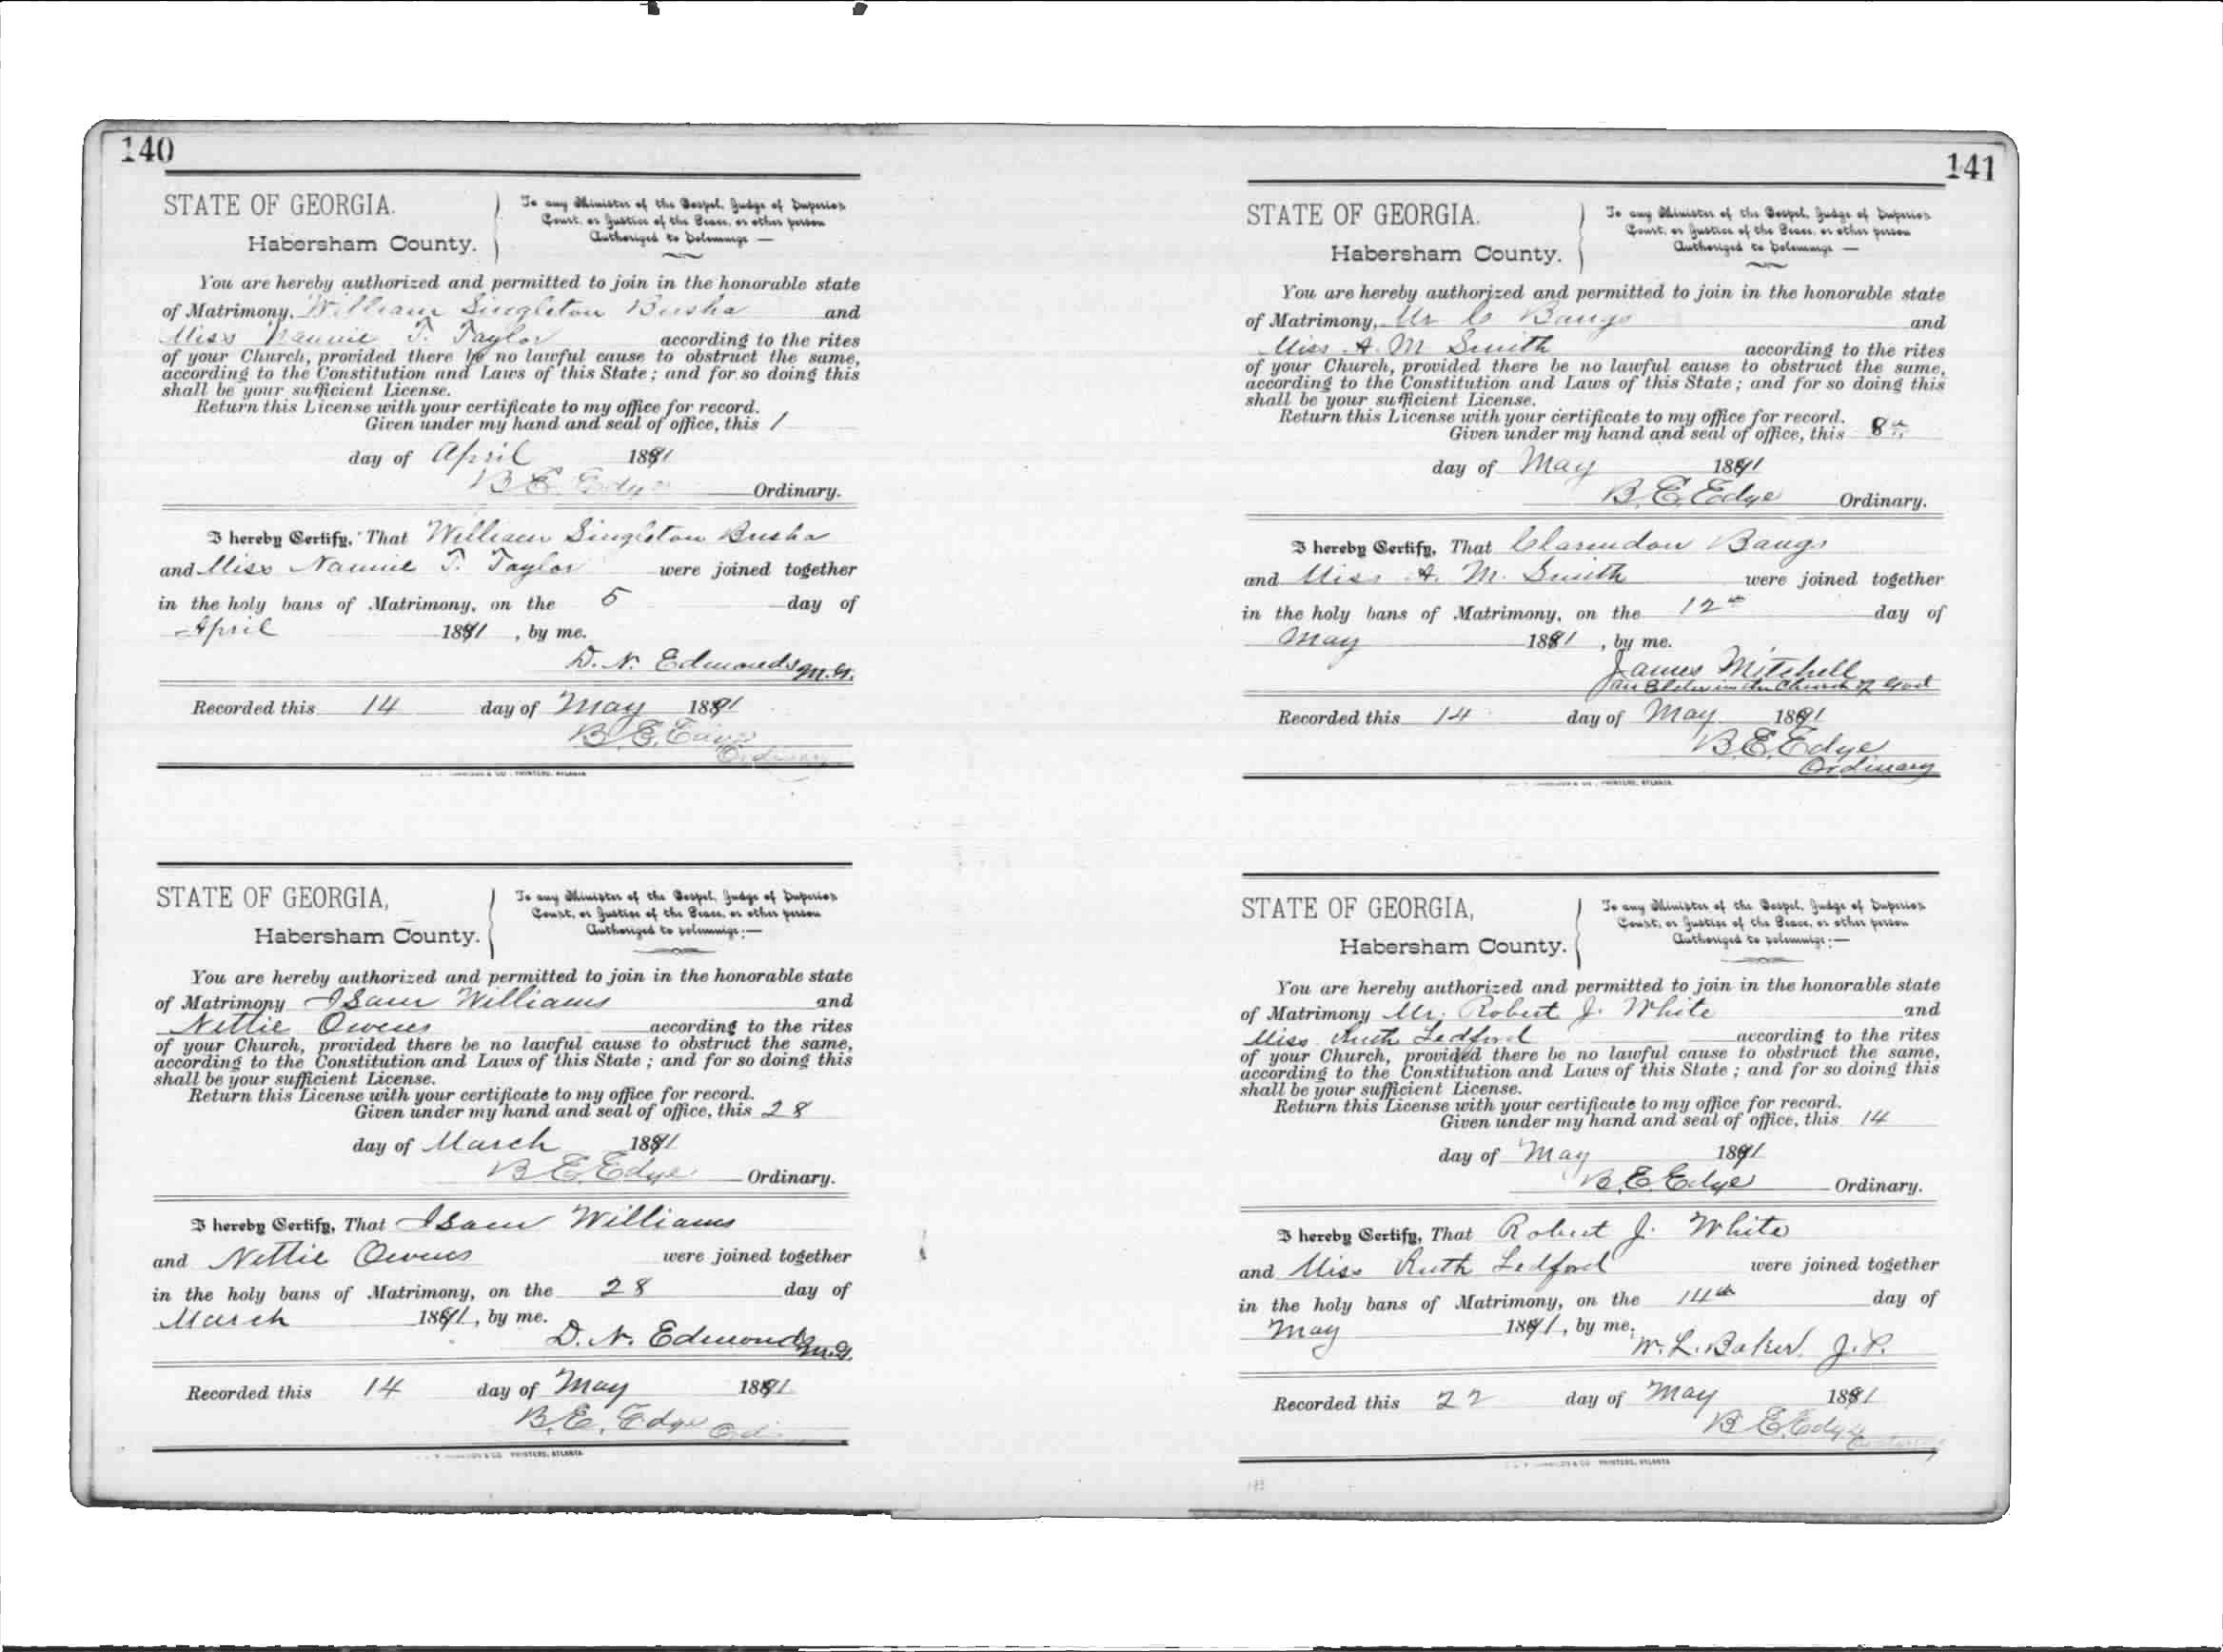 140
STATE OF GEORGIA.
Habersham County.
To any Minister of the Gospel, Judge of Superior
Court, or Justice of the Peace, or other person
Authorized to Solemnize —
You are hereby authorized and permitted to join in the honorable state
of Matrimony, William Singleton Busha and
Miss Nannie T. Taylor according to the rites
of your Church, provided there be no lawful cause to obstruct the same,
according to the Constitution and Laws of this State; and for so doing this
shall be your sufficient License.
Return this License with your certificate to my office for record.
Given under my hand and seal of office, this 1
day of April 1891
B. E. Edge Ordinary.
I hereby Certify, That William Singleton Busha
and Miss Nannie T. Taylor were joined together
in the holy bans of Matrimony, on the 5 day of
April 1891, by me.
D. N. Edmonds M.G.
Recorded this 14 day of May 1891
B. E. Edge
Ordinary
PRINTERS, ATLANTA
STATE OF GEORGIA,
Habersham County.
To any Minister of the Gospel, Judge of Superior
Court, or Justice of the Peace, or other person
Authorized to solemnize:—
You are hereby authorized and permitted to join in the honorable state
of Matrimony Isam Williams and
Nettie Owens according to the rites
of your Church, provided there be no lawful cause to obstruct the same,
according to the Constitution and Laws of this State; and for so doing this
shall be your sufficient License.
Return this License with your certificate to my office for record.
Given under my hand and seal of office, this 28
day of March 1891
B. E. Edge Ordinary.
I hereby Certify, That Isam Williams
and Nettie Owens were joined together
in the holy bans of Matrimony, on the 28 day of
March 1891, by me.
D. N. Edmonds M.G.
Recorded this 14 day of May 1891
B. E. Edge Ord.
PRINTERS, ATLANTA
141
STATE OF GEORGIA.
Habersham County.
To any Minister of the Gospel, Judge of Superior
Court, or Justice of the Peace, or other person
Authorized to Solemnize —
You are hereby authorized and permitted to join in the honorable state
of Matrimony, Mr C Bangs and
Miss A. M Smith according to the rites
of your Church, provided there be no lawful cause to obstruct the same,
according to the Constitution and Laws of this State; and for so doing this
shall be your sufficient License.
Return this License with your certificate to my office for record.
Given under my hand and seal of office, this 8th
day of May 1891
B. E. Edge Ordinary.
I hereby Certify, That Clarendon Bangs
and Miss A. M. Smith were joined together
in the holy bans of Matrimony, on the 12th day of
May 1891, by me.
James Mitchell
an Elder in the Church of God
Recorded this 14 day of May 1891
B. E. Edge
Ordinary
PRINTERS, ATLANTA
STATE OF GEORGIA,
Habersham County.
To any Minister of the Gospel, Judge of Superior
Court, or Justice of the Peace, or other person
Authorized to solemnize:—
You are hereby authorized and permitted to join in the honorable state
of Matrimony Mr. Robert J. White and
Miss Ruth Ledford according to the rites
of your Church, provided there be no lawful cause to obstruct the same,
according to the Constitution and Laws of this State; and for so doing this
shall be your sufficient License.
Return this License with your certificate to my office for record.
Given under my hand and seal of office, this 14
day of May 1891
B. E. Edge Ordinary.
I hereby Certify, That Robert J. White
and Miss Ruth Ledford were joined together
in the holy bans of Matrimony, on the 14th day of
May 1891, by me.
W. L. Baker J.P.
Recorded this 22 day of May 1891
B. E. Edge Ordinary
PRINTERS, ATLANTA